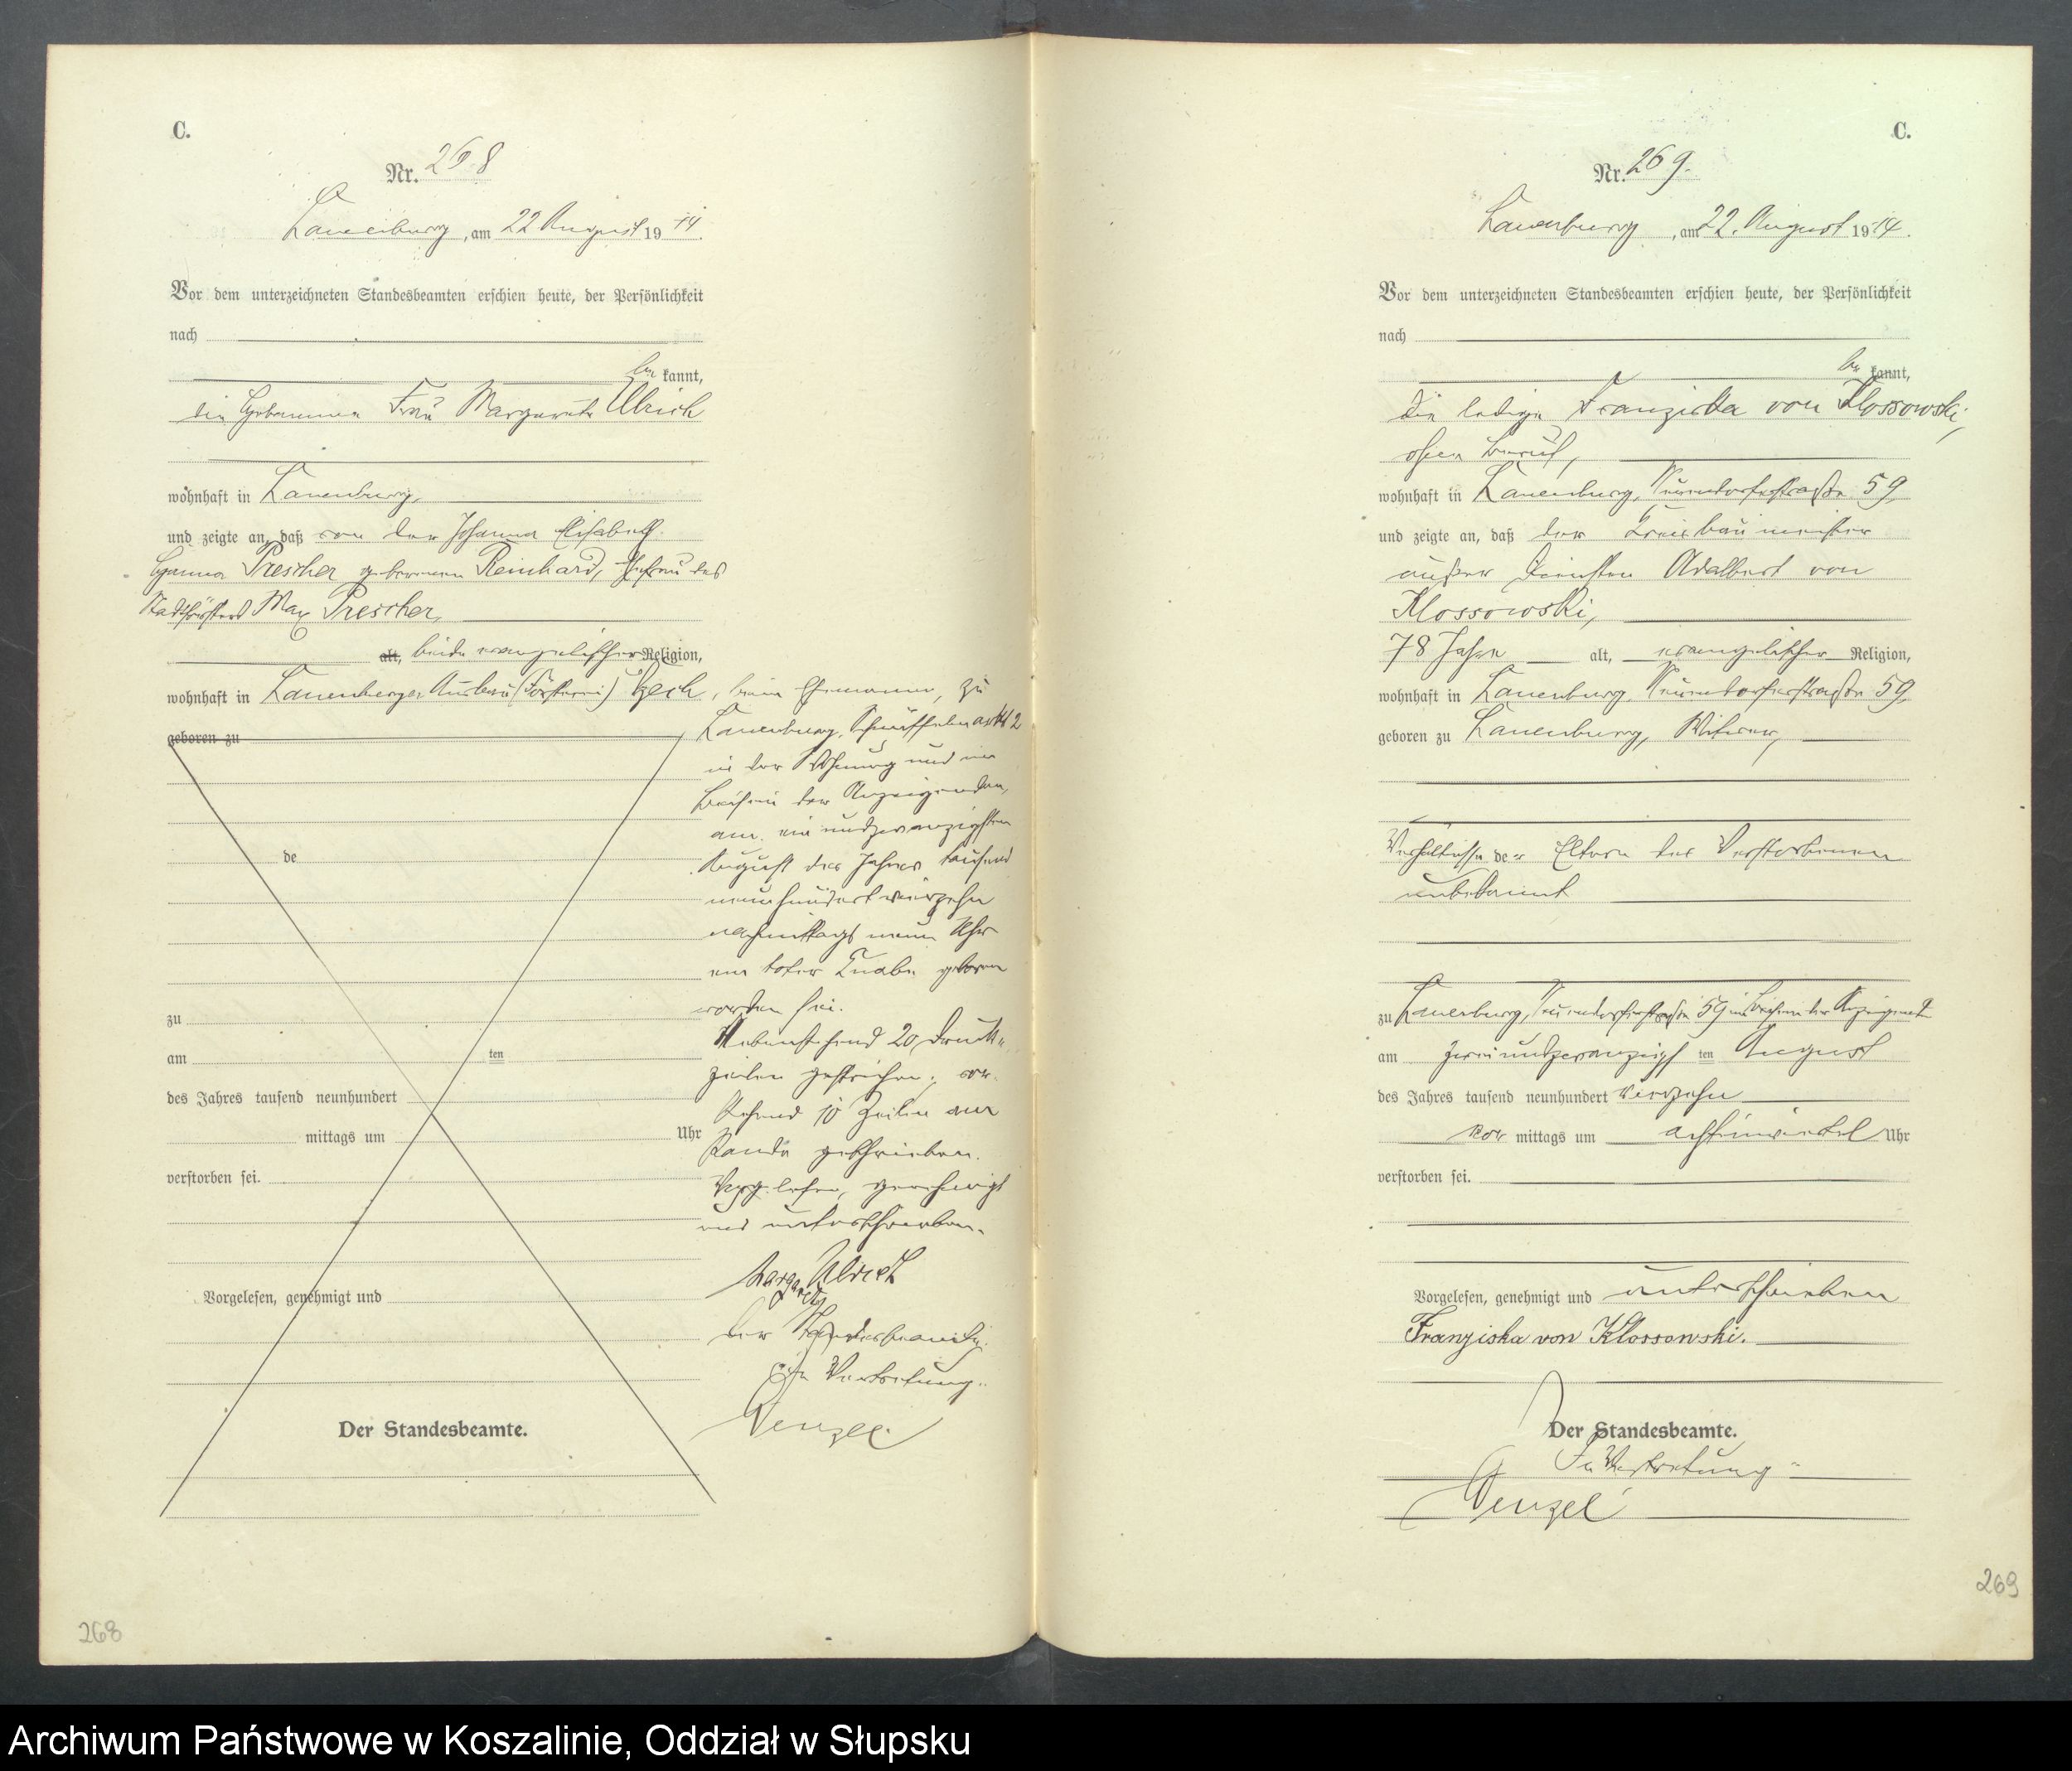 C.
Nr. 268
Lauenburg, am 22 August 19 14.
Vor dem unterzeichneten Standesbeamten erschien heute, der Persönlichkeit
nach
be kannt,
die Hebamme Frau Margarete Ulrich
wohnhaft in Lauenburg,
und zeigte an, daß von der Johanna Elisabeth
Prescher geborenen Reinhard, Ehefrau des
Stadtförsters Max Prescher,
alt, beide evangelischer Religion,
wohnhaft in Lauenburger Ausbau (Försterei) bei ihrem Ehemanne, zu
geboren zu
Lauenburg, 2
in der Wohnung und im
Beisein der Anzeigenden,
am ein und zwanzigsten
August des Jahres tausend
neunhundert vierzehn
nachmittags neun Uhr
ein toter Knabe geboren
worden sei.
Nebenstehend 20 Druck-
zeilen gestrichen; vor-
stehend 10 Zeilen am
Rande geschrieben.
Vorgelesen, genehmigt
und unterschrieben.
Margarete Ulrich
Der Standesbeamte.
In Vertretung.
Wenzel
de
zu
am ten
des Jahres tausend neunhundert
mittags um Uhr
verstorben sei.
Vorgelesen, genehmigt und
Der Standesbeamte.
268
C.
Nr. 269.
Lauenburg, am 22. August 19 14.
Vor dem unterzeichneten Standesbeamten erschien heute, der Persönlichkeit
nach
be kannt,
die ledige Franziska von Klossowski,
ohne Beruf,
wohnhaft in Lauenburg, Neuendorferstraße 59,
und zeigte an, daß der Kreisbaumeister
außer Diensten Adalbert von
Klossowski,
78 Jahre alt, evangelischer Religion,
wohnhaft in Lauenburg, Neuendorferstraße 59,
geboren zu Lauenburg, Witwer,
Verhältnisse der Eltern des Verstorbenen
unbekannt
zu Lauenburg, Neuendorferstraße 59 im Beisein der Anzeigende
am zwei und zwanzigsten ten August
des Jahres tausend neunhundert vierzehn
vor mittags um achteinviertel Uhr
verstorben sei.
Vorgelesen, genehmigt und unterschrieben
Franziska von Klossowski.
Der Standesbeamte.
In Vertretung
Wenzel
269
Archiwum Państwowe w Koszalinie, Oddział w Słupsku